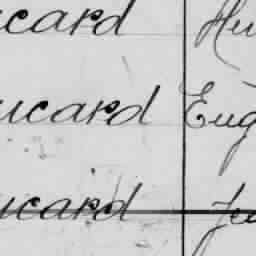 ucard Hu
ucard Eug
ucard Ju